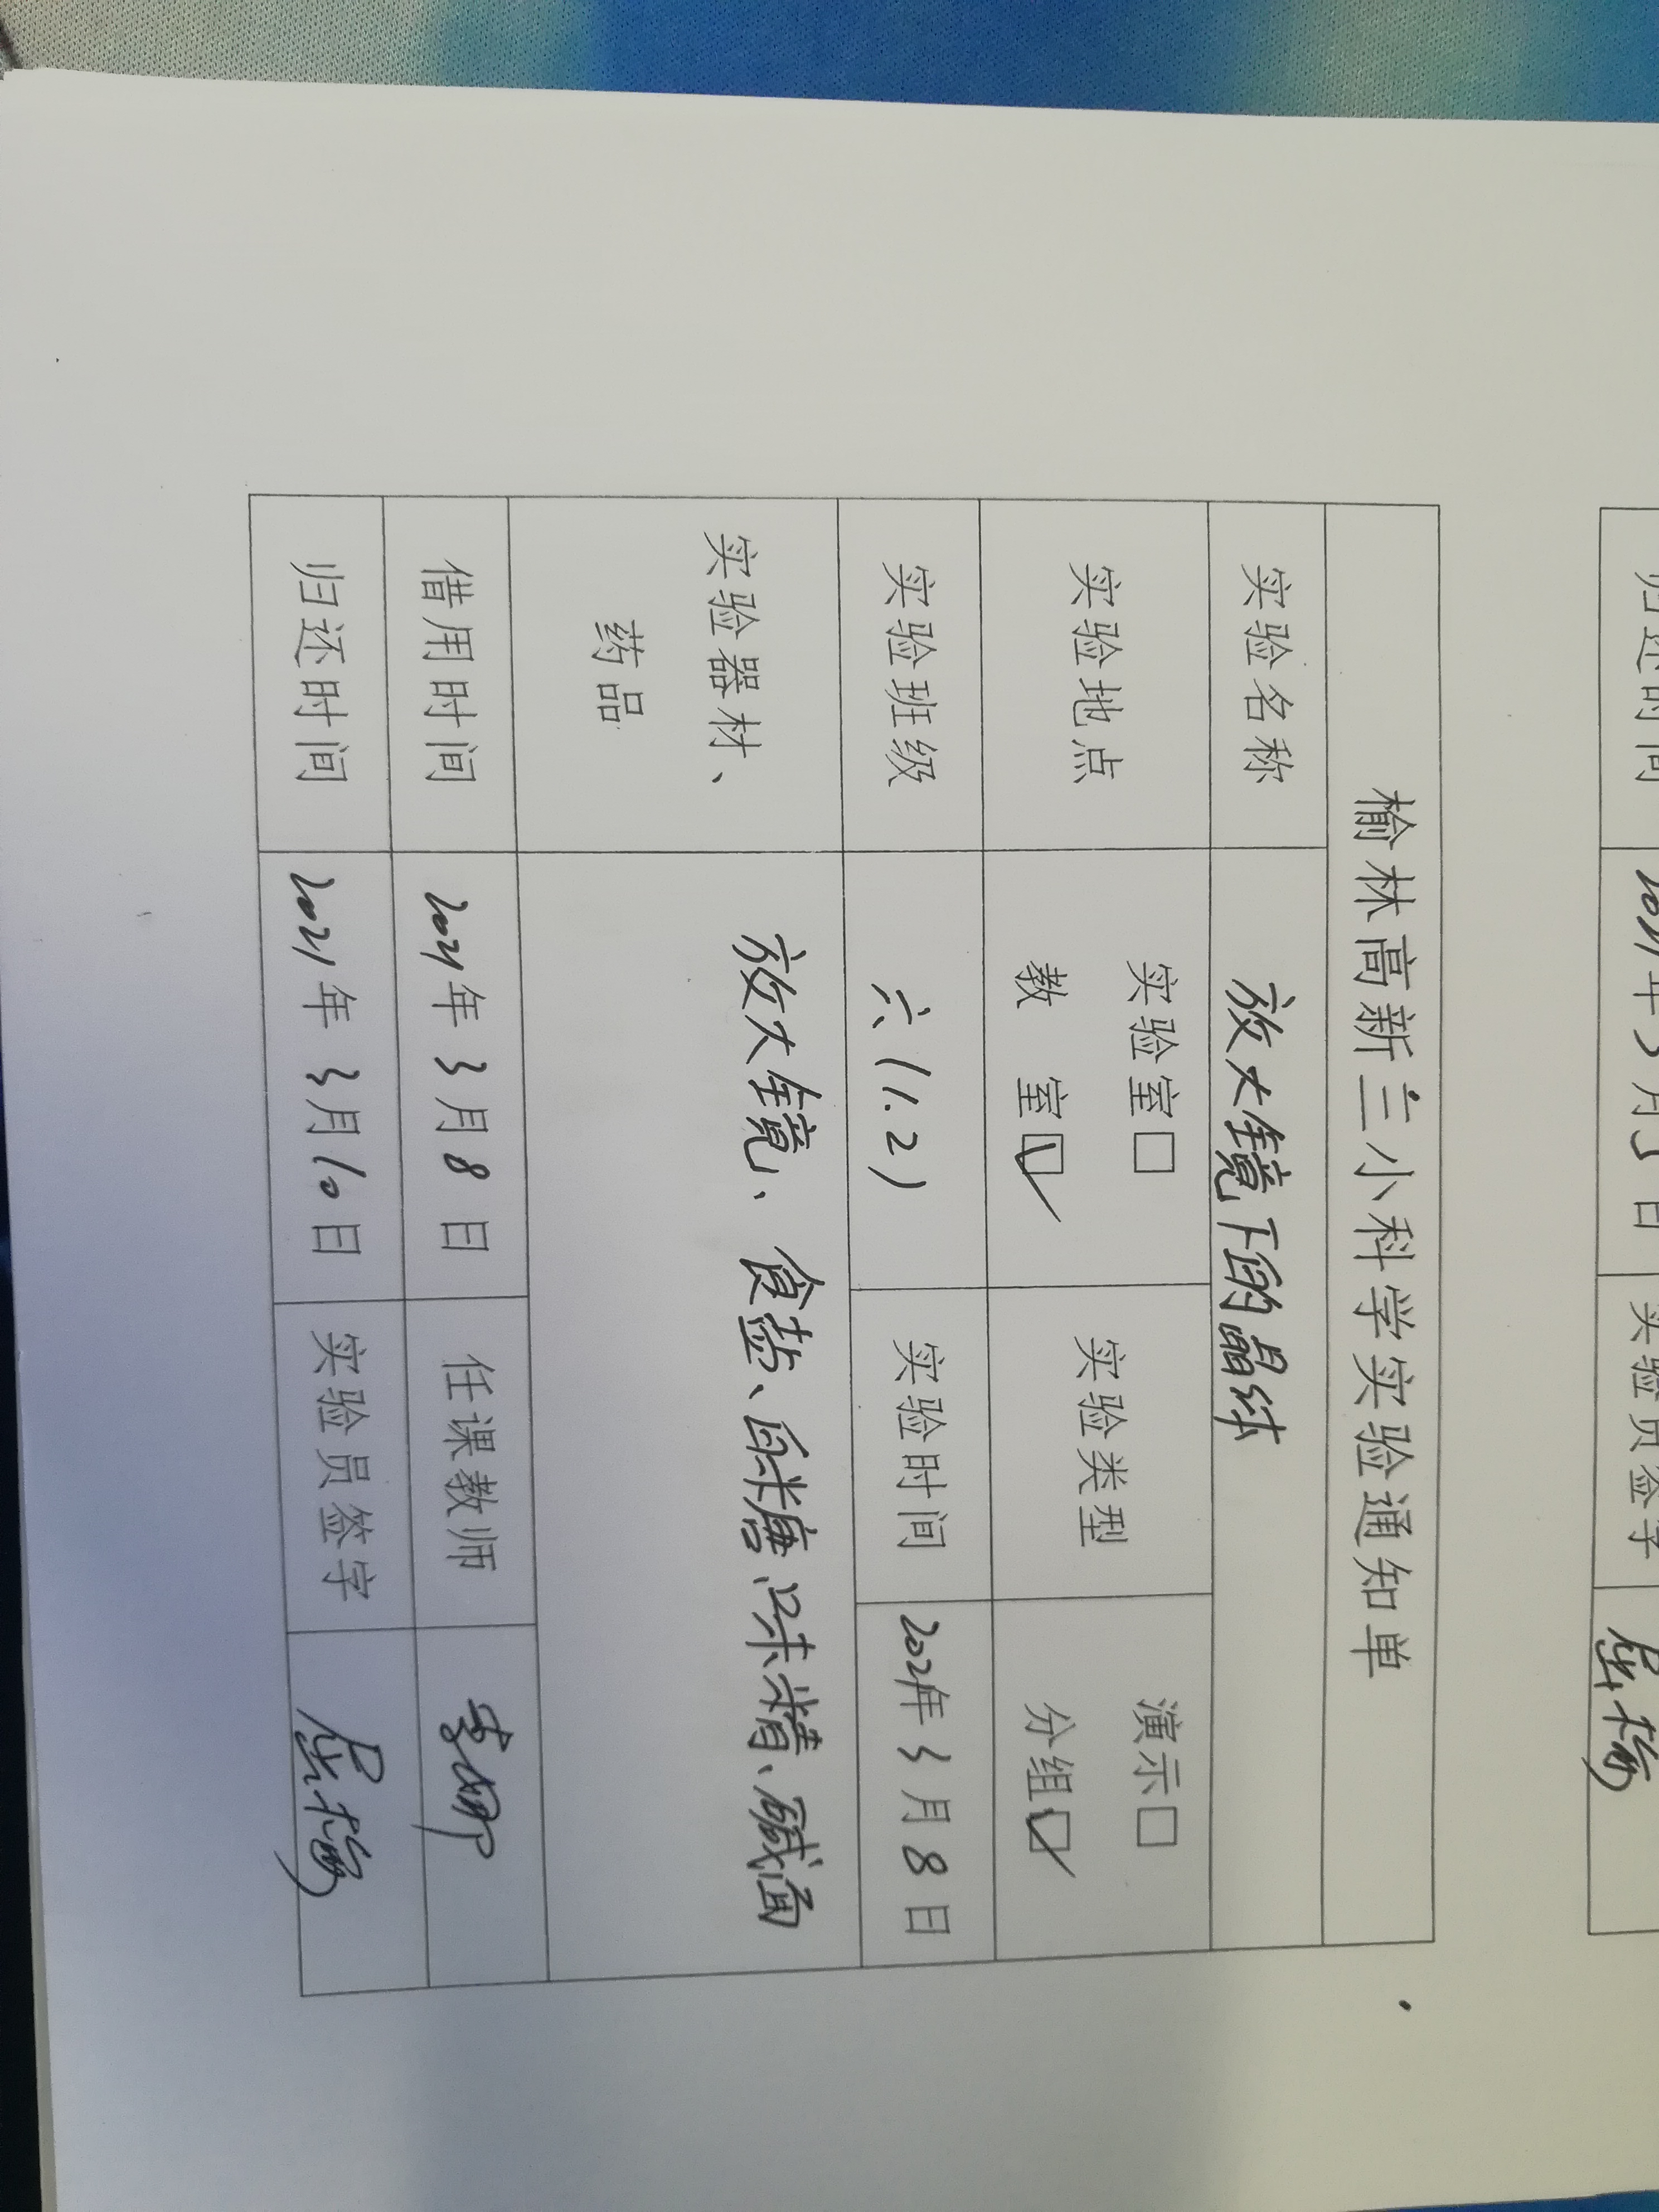 榆林高新三小科学实验通知单
实验名称 放大镜下的晶体
实验地点 实验室□ 教 室☑ 实验类型 演示□ 分组☑
实验班级 六(1.2) 实验时间 2021年3月8日
实验器材、药品 放大镜、食盐、白砂糖、味精、碱面
借用时间 2021年3月8日 任课教师
归还时间 2021年3月10日 实验员签字
归还时间 2021年3月5日 实验员签字